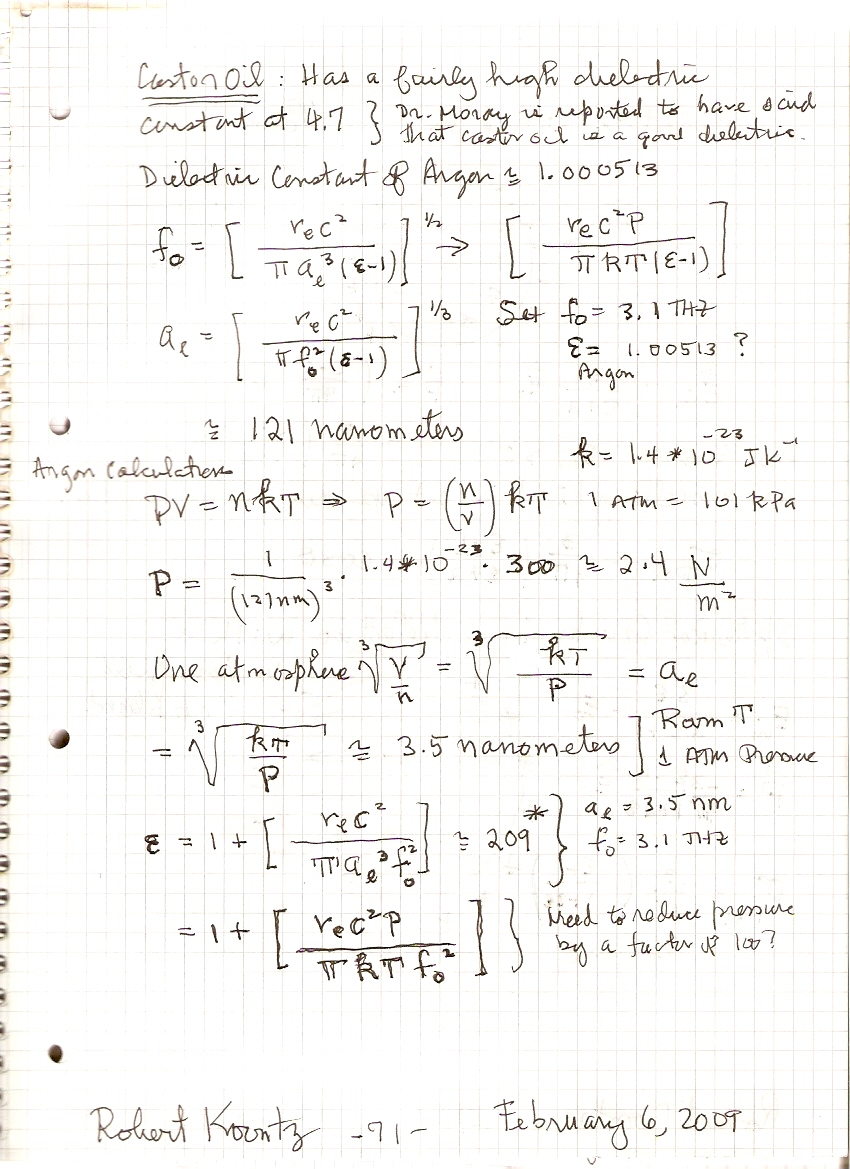 Castor Oil : Has a fairly high dielectric
constant at 4.7 } Dr. Moray is reported to have said
that castor oil is a good dielectric.
Dielectric Constant of Argon ≅ 1.000513
f₀ = [ rₑc² / πaₑ³(ε-1) ]^1/2 → [ rₑc²P / πkT(ε-1) ]
aₑ = [ rₑc² / πf₀²(ε-1) ]^1/3 Set f₀ = 3.1 THz
ε = 1.00513 ?
Argon
≅ 121 nanometers
k = 1.4 * 10^-23 J k^-1
Argon Calculations
PV = nkT ⇒ P = (n/V) kT 1 ATM = 101 kPa
P = 1/(121nm)³ · 1.4*10^-23 · 300 ≅ 2.4 N/m²
One atmosphere ∛(V/n) = ∛(kT/P) = aₑ
= ∛(kT/P) ≅ 3.5 nanometers ] Room T
1 ATM Pressure
ε = 1 + [ rₑc² / πaₑ³f₀² ] ≅ 209* } aₑ = 3.5 nm
f₀ = 3.1 THz
= 1 + [ rₑc²P / πkTf₀² ] } Need to reduce pressure
by a factor of 100?
Robert Koontz -71- February 6, 2009